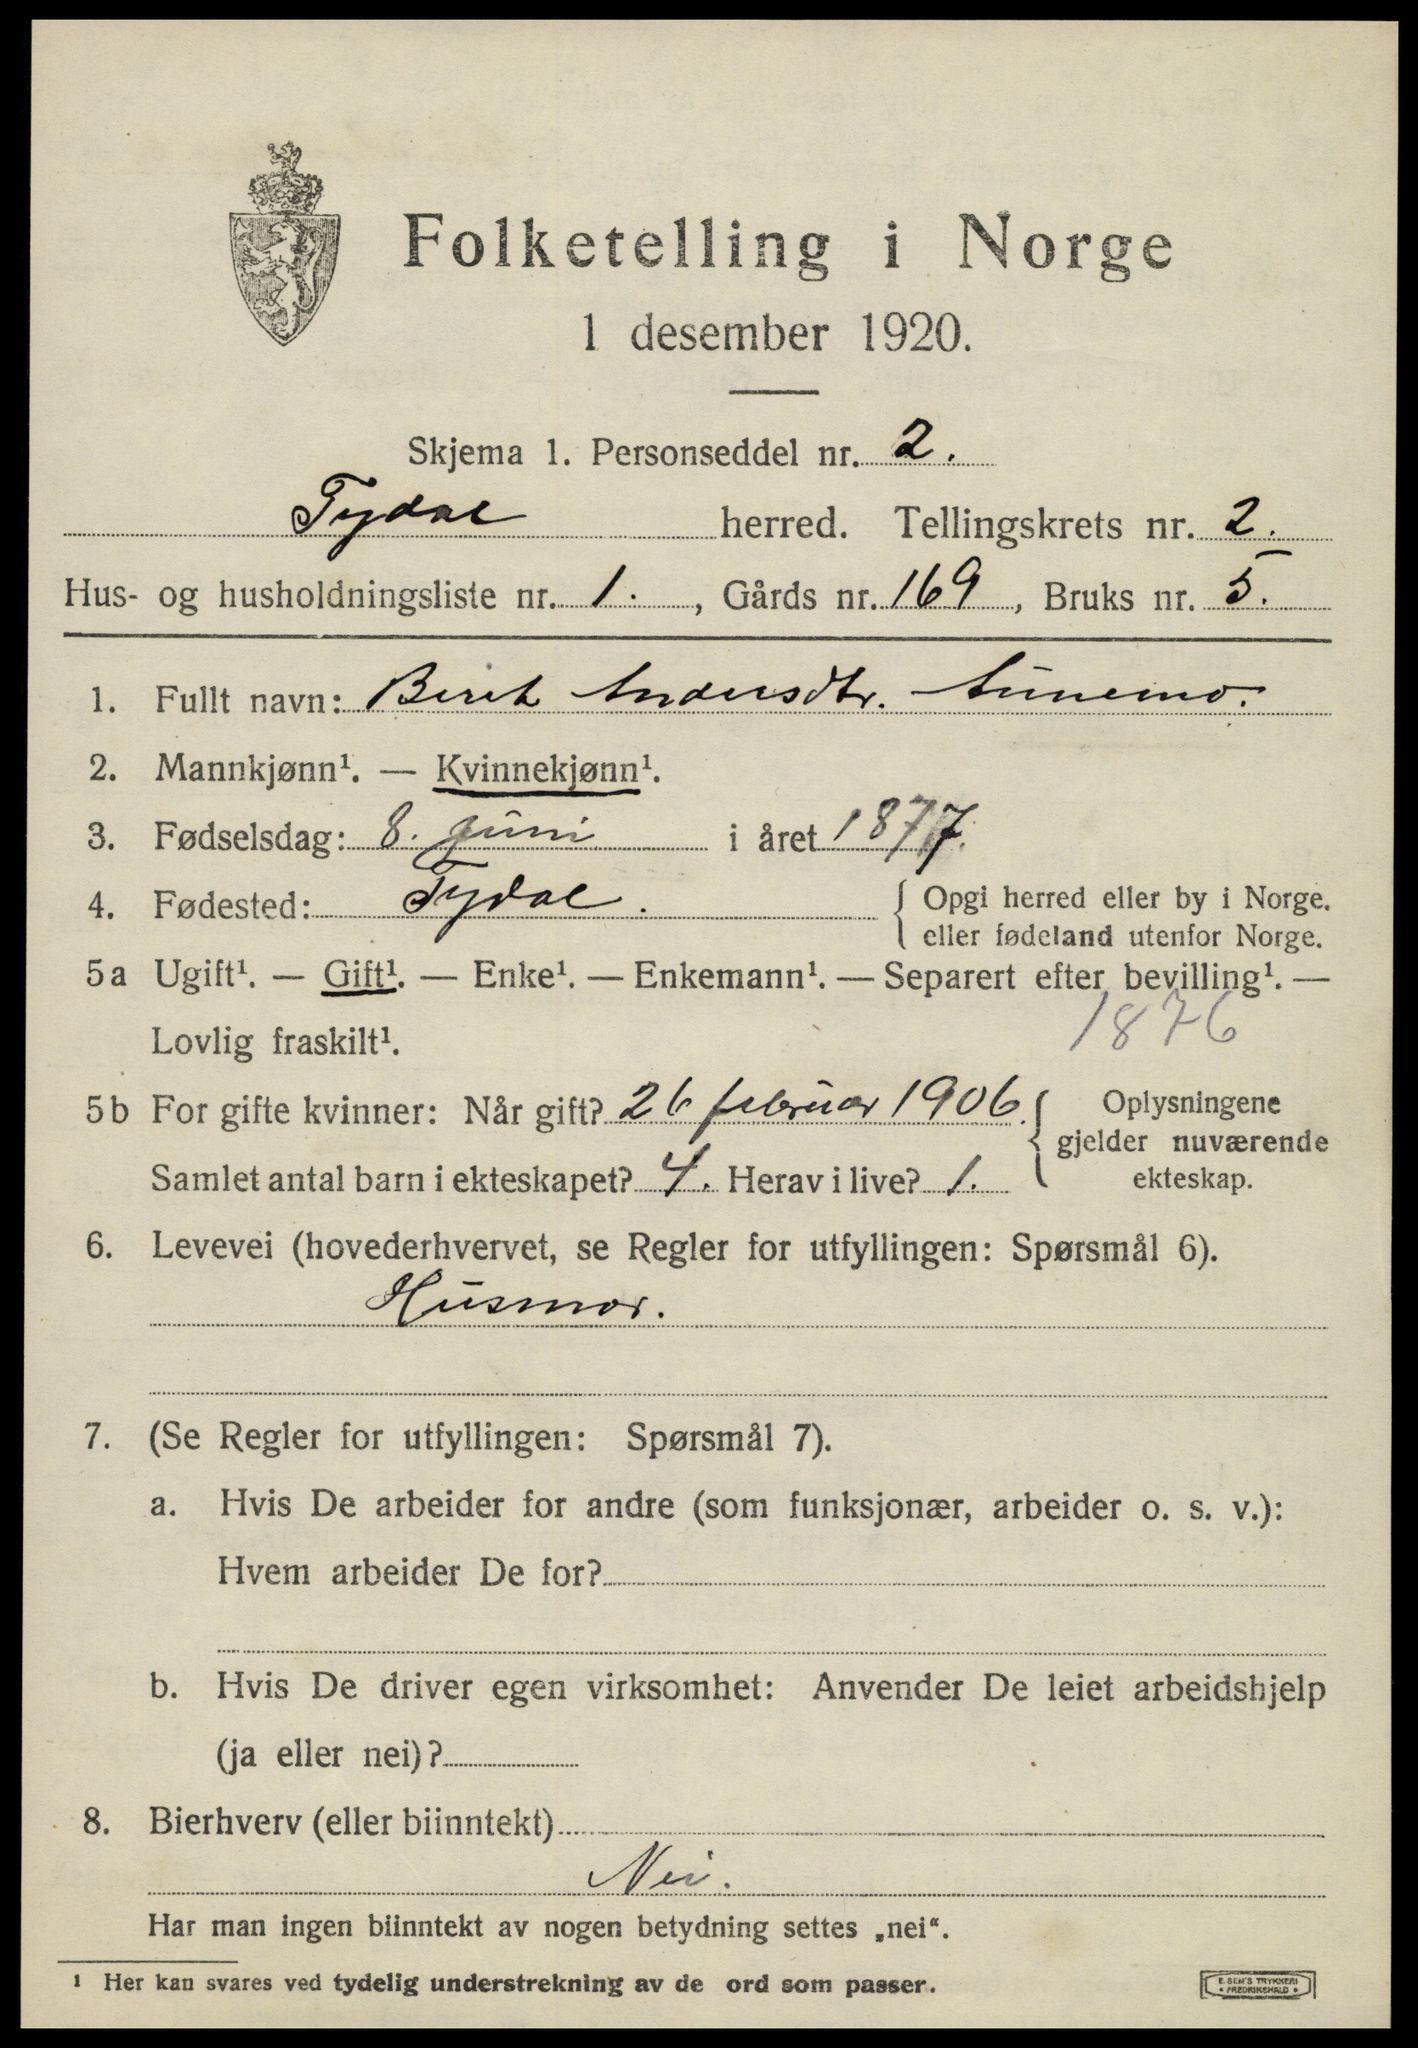 Folketelling i Norge
1 desember 1920.
Skjema 1. Personseddel nr. 2.
Tydal herred. Tellingskrets nr. 2.
Hus- og husholdningsliste nr. 1. , Gårds nr. 169, Bruks nr. 5.
1. Fullt navn: Berit Andersdtr. Aunemo.
2. Mannkjønn¹. — Kvinnekjønn¹.
3. Fødselsdag: 8. juni i året 1877.
4. Fødested: Tydal. { Opgi herred eller by i Norge.
eller fødeland utenfor Norge.
5a Ugift¹. — Gift¹. — Enke¹. — Enkemann¹. — Separert efter bevilling¹. —
Lovlig fraskilt¹. 1876
5b For gifte kvinner: Når gift? 26 februar 1906. { Oplysningene
gjelder nuværende
Samlet antal barn i ekteskapet? 4. Herav i live? 1. ekteskap.
6. Levevei (hovederhvervet, se Regler for utfyllingen: Spørsmål 6).
Husmor.
7. (Se Regler for utfyllingen: Spørsmål 7).
a. Hvis De arbeider for andre (som funksjonær, arbeider o. s. v.):
Hvem arbeider De for?
b. Hvis De driver egen virksomhet: Anvender De leiet arbeidshjelp
(ja eller nei)?
8. Bierhverv (eller biinntekt)
Nei.
Har man ingen biinntekt av nogen betydning settes „nei“.
¹ Her kan svares ved tydelig understrekning av de ord som passer.
E. SEM'S TRYKKERI
• FREDRIKSHALD •